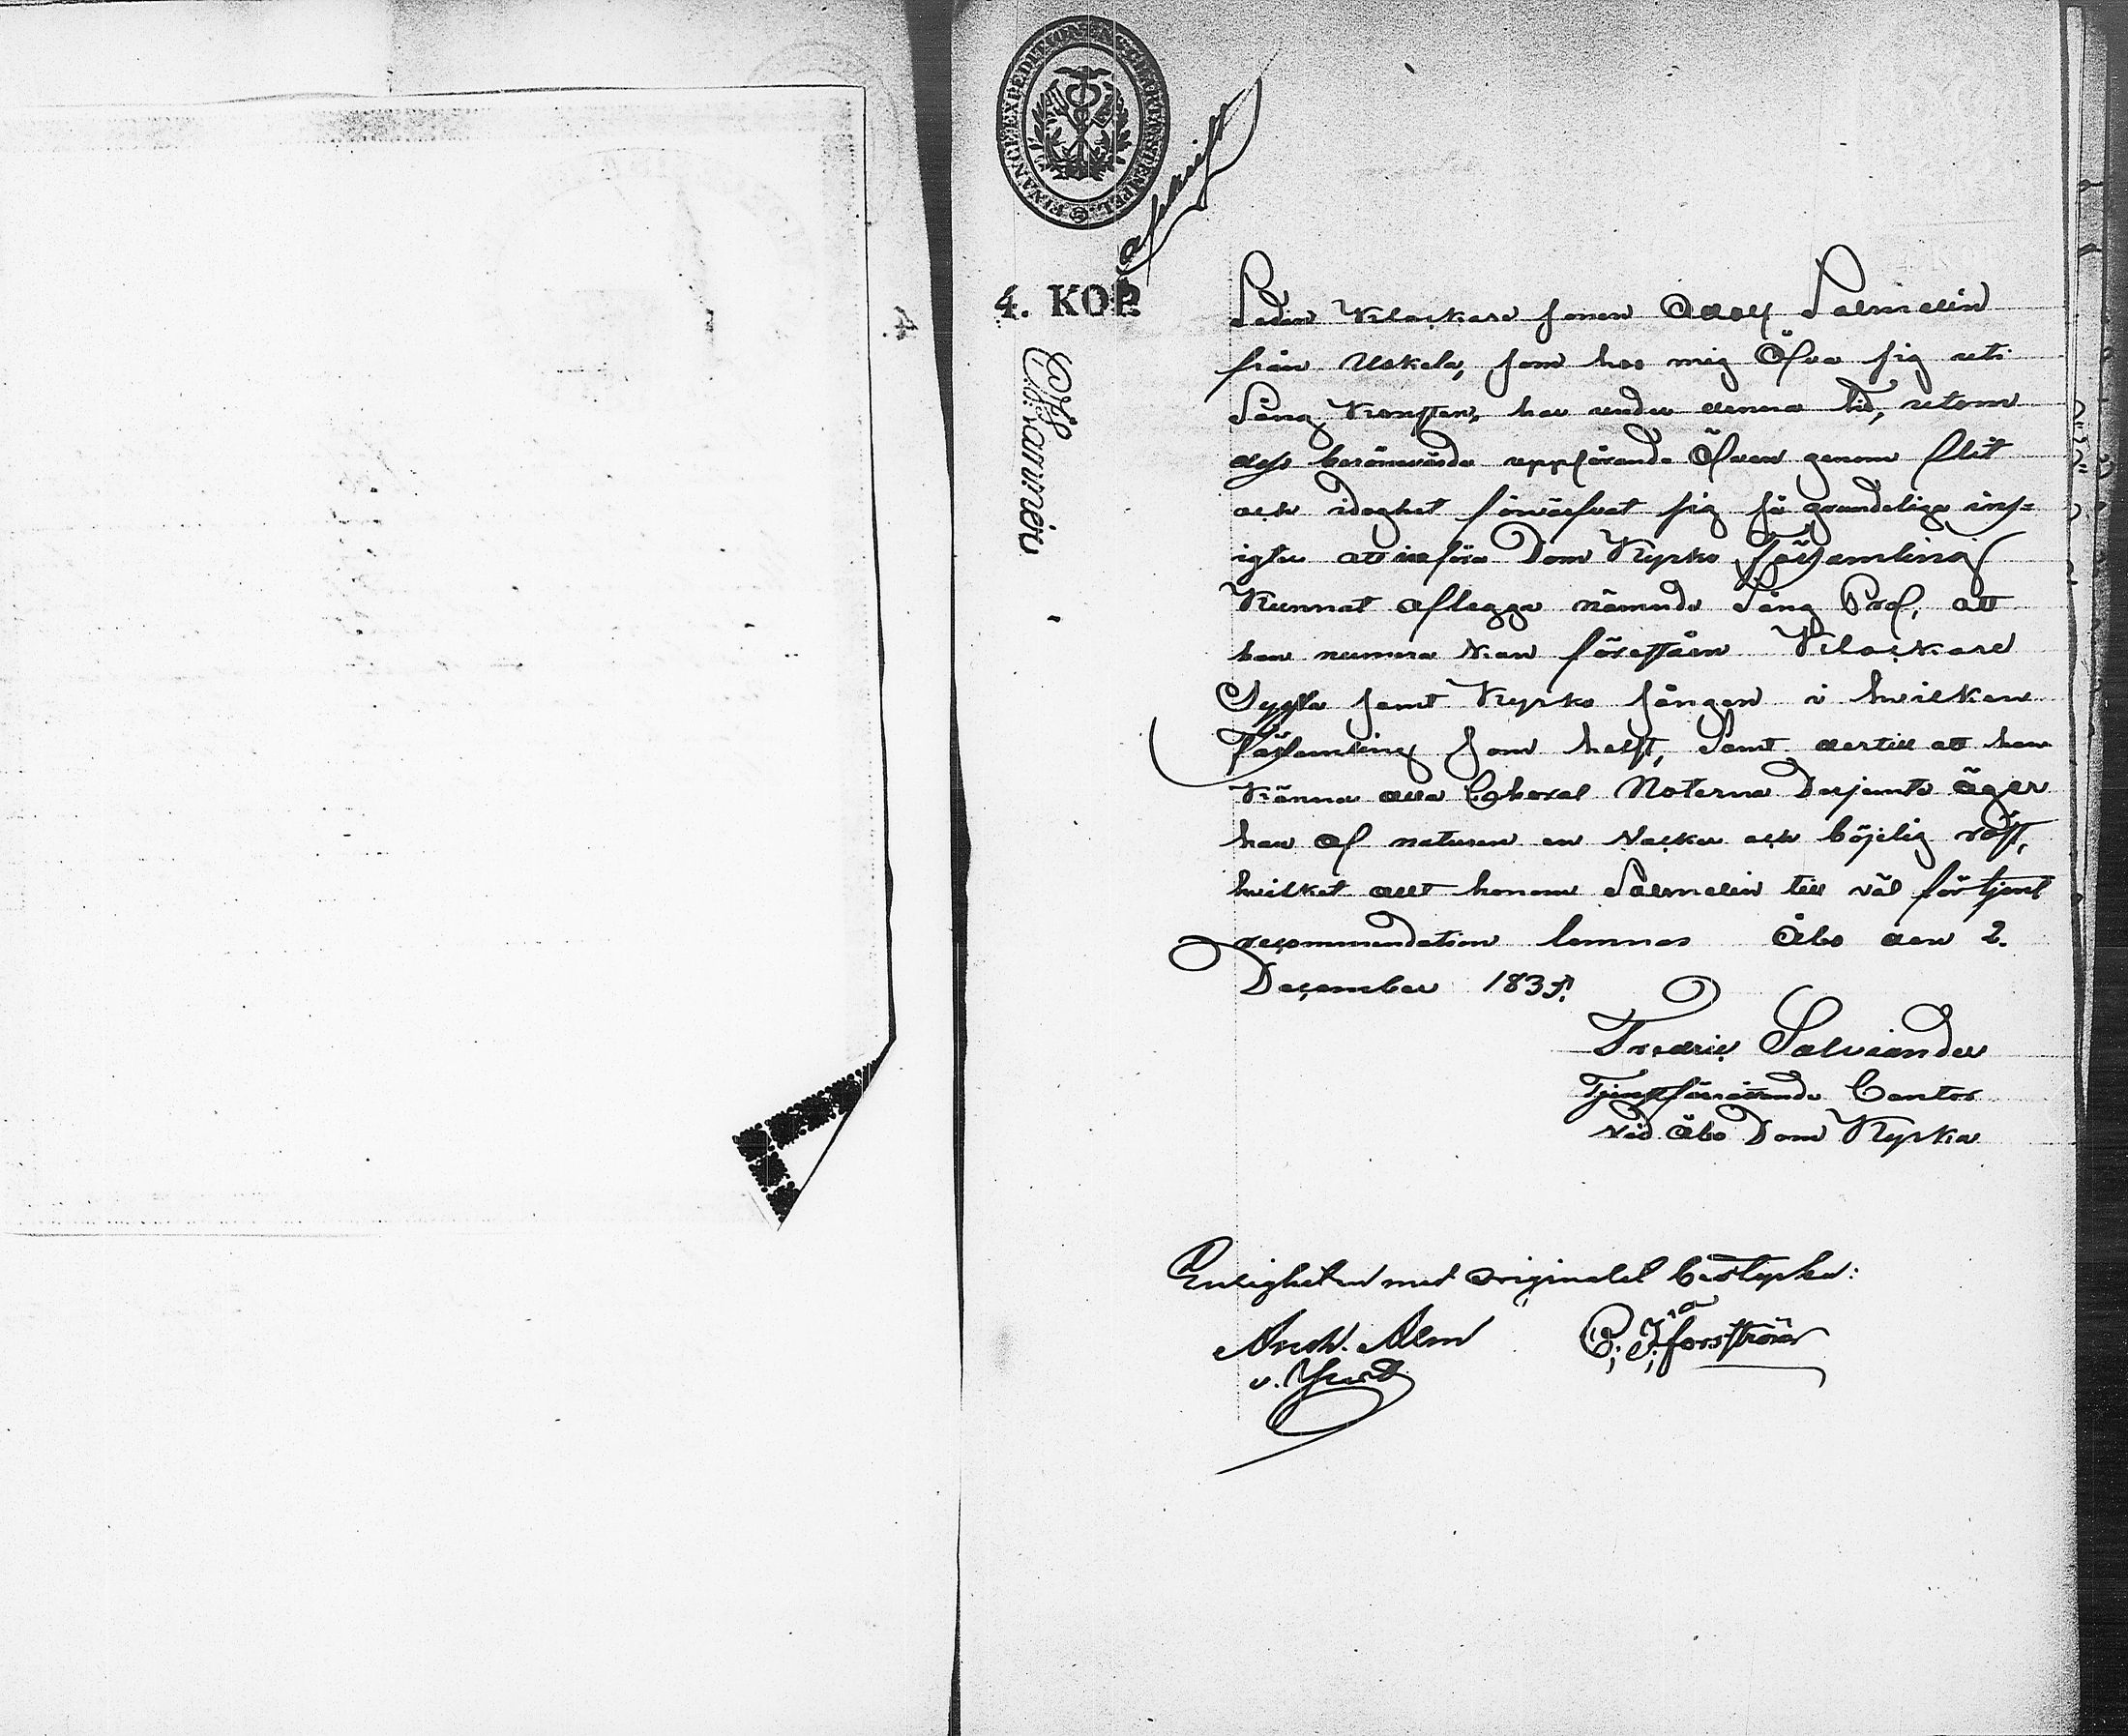 FINANCE EXPEDITIONEN CHARTÆ STEMPEL
afskrift
4. KOP.
4
Sedan Klockare sonen Adolf Salmelin
från Uskela, som hos mig Öfva sig uti
Sång Konsten, har under denna tid, utom
dess berömvärda uppförande Äfven genom flit
och idoghet förvärfvat sig så grundeliga ins-
igter att inför Dom Kyrko Församling
Kunnat aflegga nämnde Sång Prof, att
han numera kan förestå en Klockare
Syssla samt Kyrko sången i hvilken
Församling som helst, Samt dertill att han
känna alla Choral Noterna Desjemte äger
han af naturen en vacker och böjelig röst,
hvilket allt honom Salmelin till väl förtjent
recommendation lemnas Åbo den 2.
December 183
Fredric Salviander
Tjenstförrättande Cantor
vid Åbo Dom Kyrka
Enligheten med originalet bestyrka:
And. Alm C: J: forsström